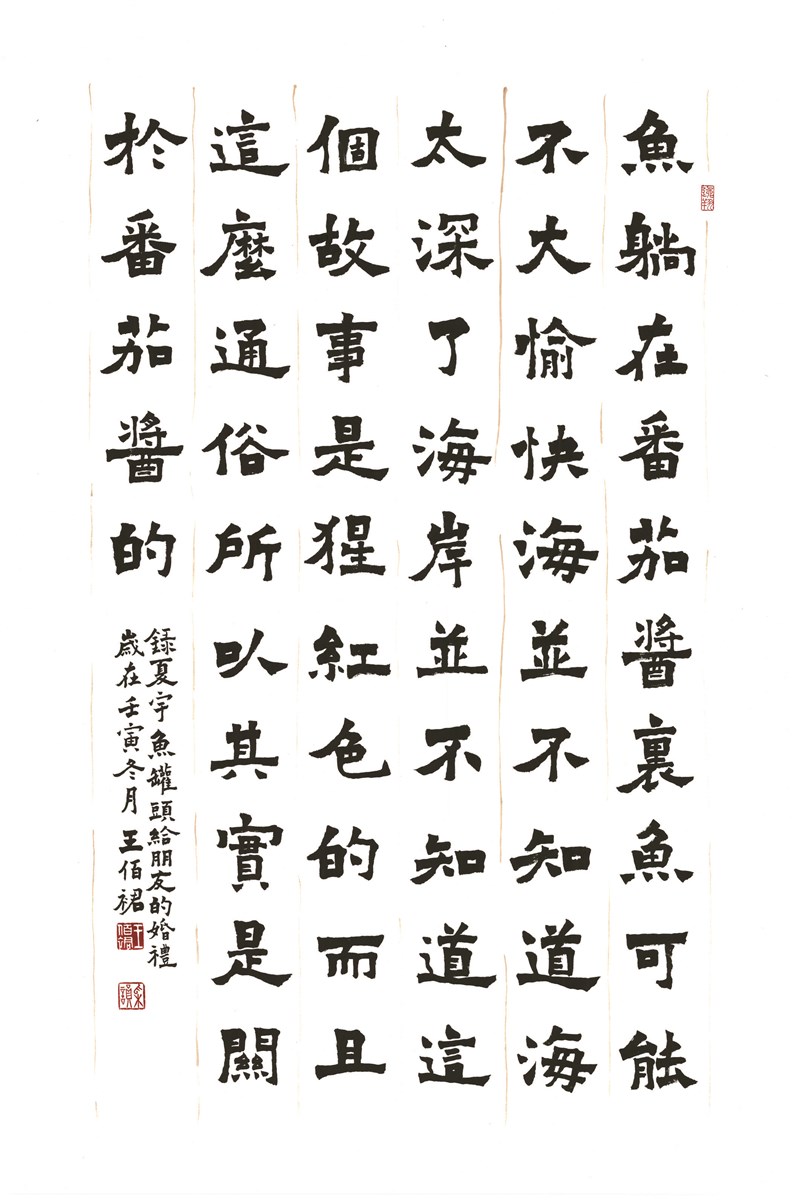 魚躺在番茄醬裏魚可能
不大愉快海並不知道海
太深了海岸並不知道這
個故事是猩紅色的而且
這麼通俗所以其實是關
於番茄醬的
録夏宇魚罐頭給朋友的婚禮
歲在壬寅冬月王佰裙